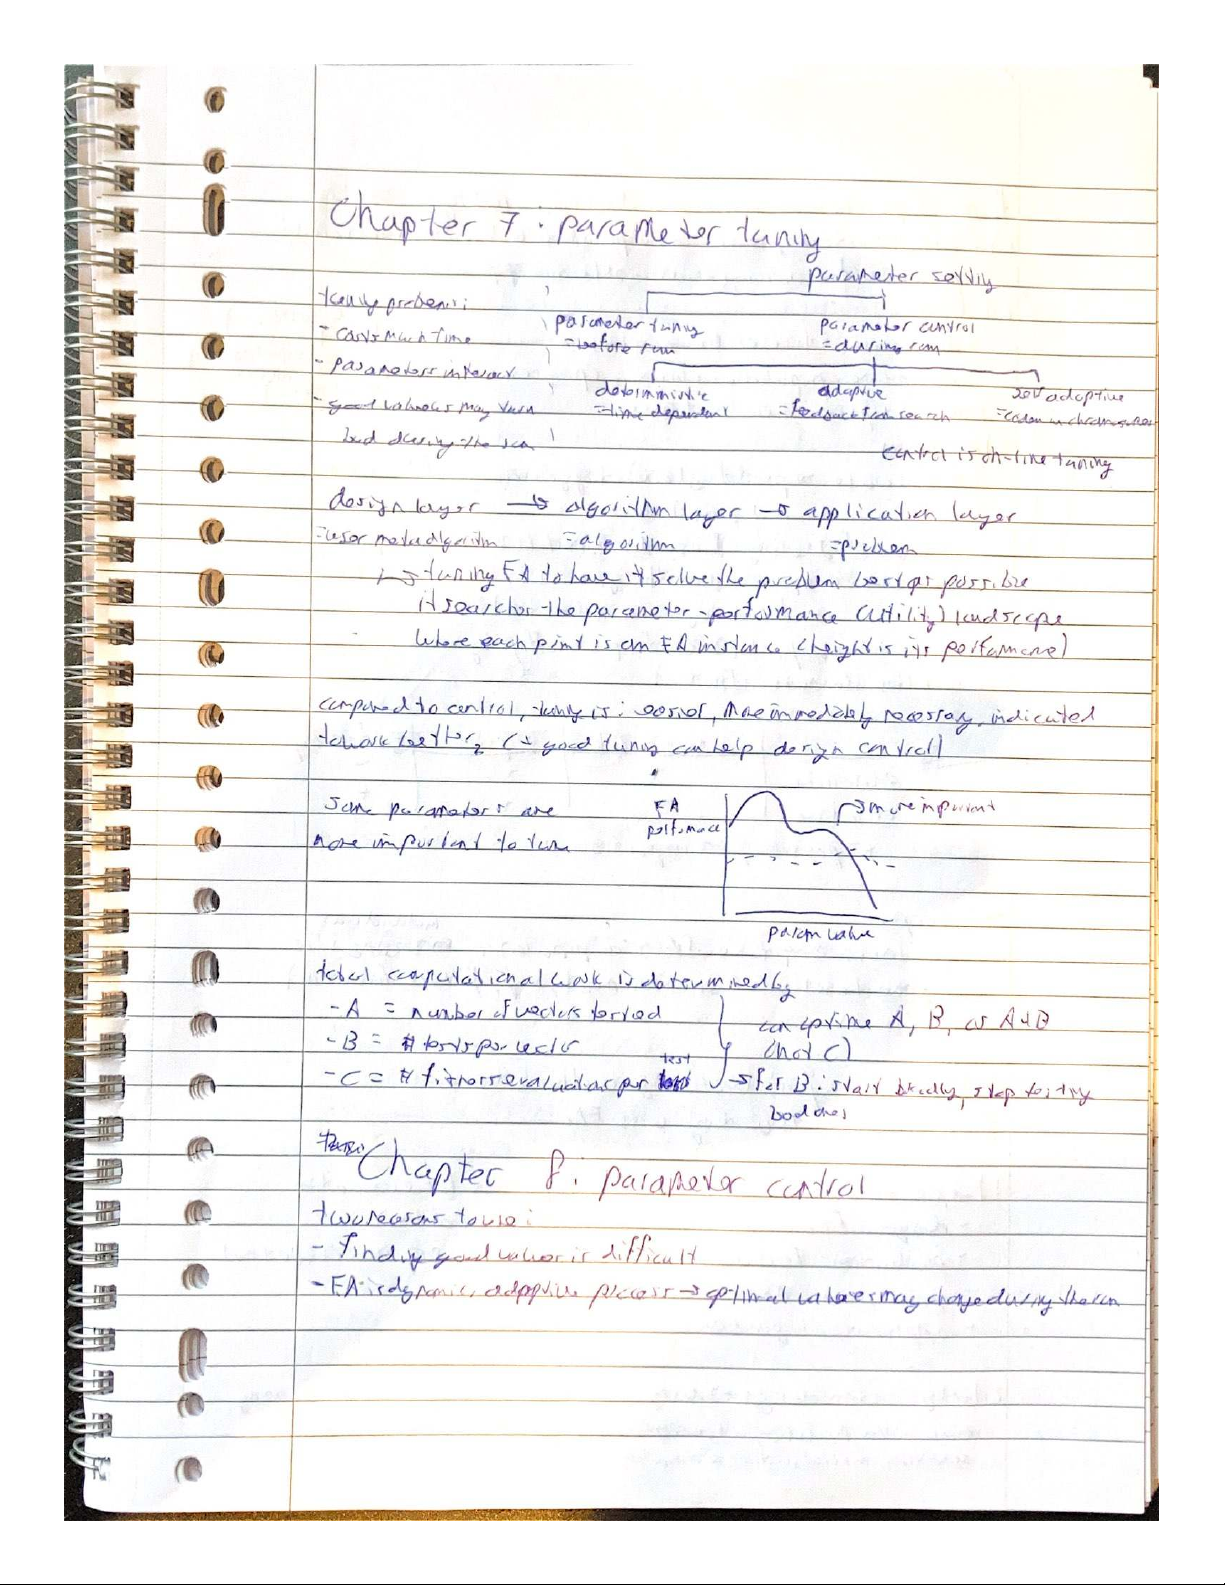 Chapter 7: parameter tuning
parameter setting
tuning problems:
parameter tuning
parameter control
- costs much time
= before run
= during run
- parameters interact
deterministic
adaptive
self adaptive
- good values may turn
= time dependent
= feedback from search
= coden in chromosomes
bad during the run
control is on-line tuning
design layer → algorithm layer → application layer
= user metaalgorithm = algorithm = problem
↳ tuning EA to have it solve the problem best as possible
it searches the parameter-performance (utility) landscape
where each point is an EA instance (height is its performance)
compared to control, tuning is: easier, more immediately necessary, indicated
to work better, (+ good tuning can help design control)
some parameters are
EA
more important
performance
more important to tune
param value
total computational work is determined by
- A = number of vectors tested
can optimise A, B, or A & B
- B = # tests per vector
(not C)
- C = # fitness evaluations per test
→ for B: start blindly, stop testing
bad ones
Chapter 8: parameter control
two reasons to use:
- finding good values is difficult
- EA is dynamic, adaptive process → optimal values may change during the run